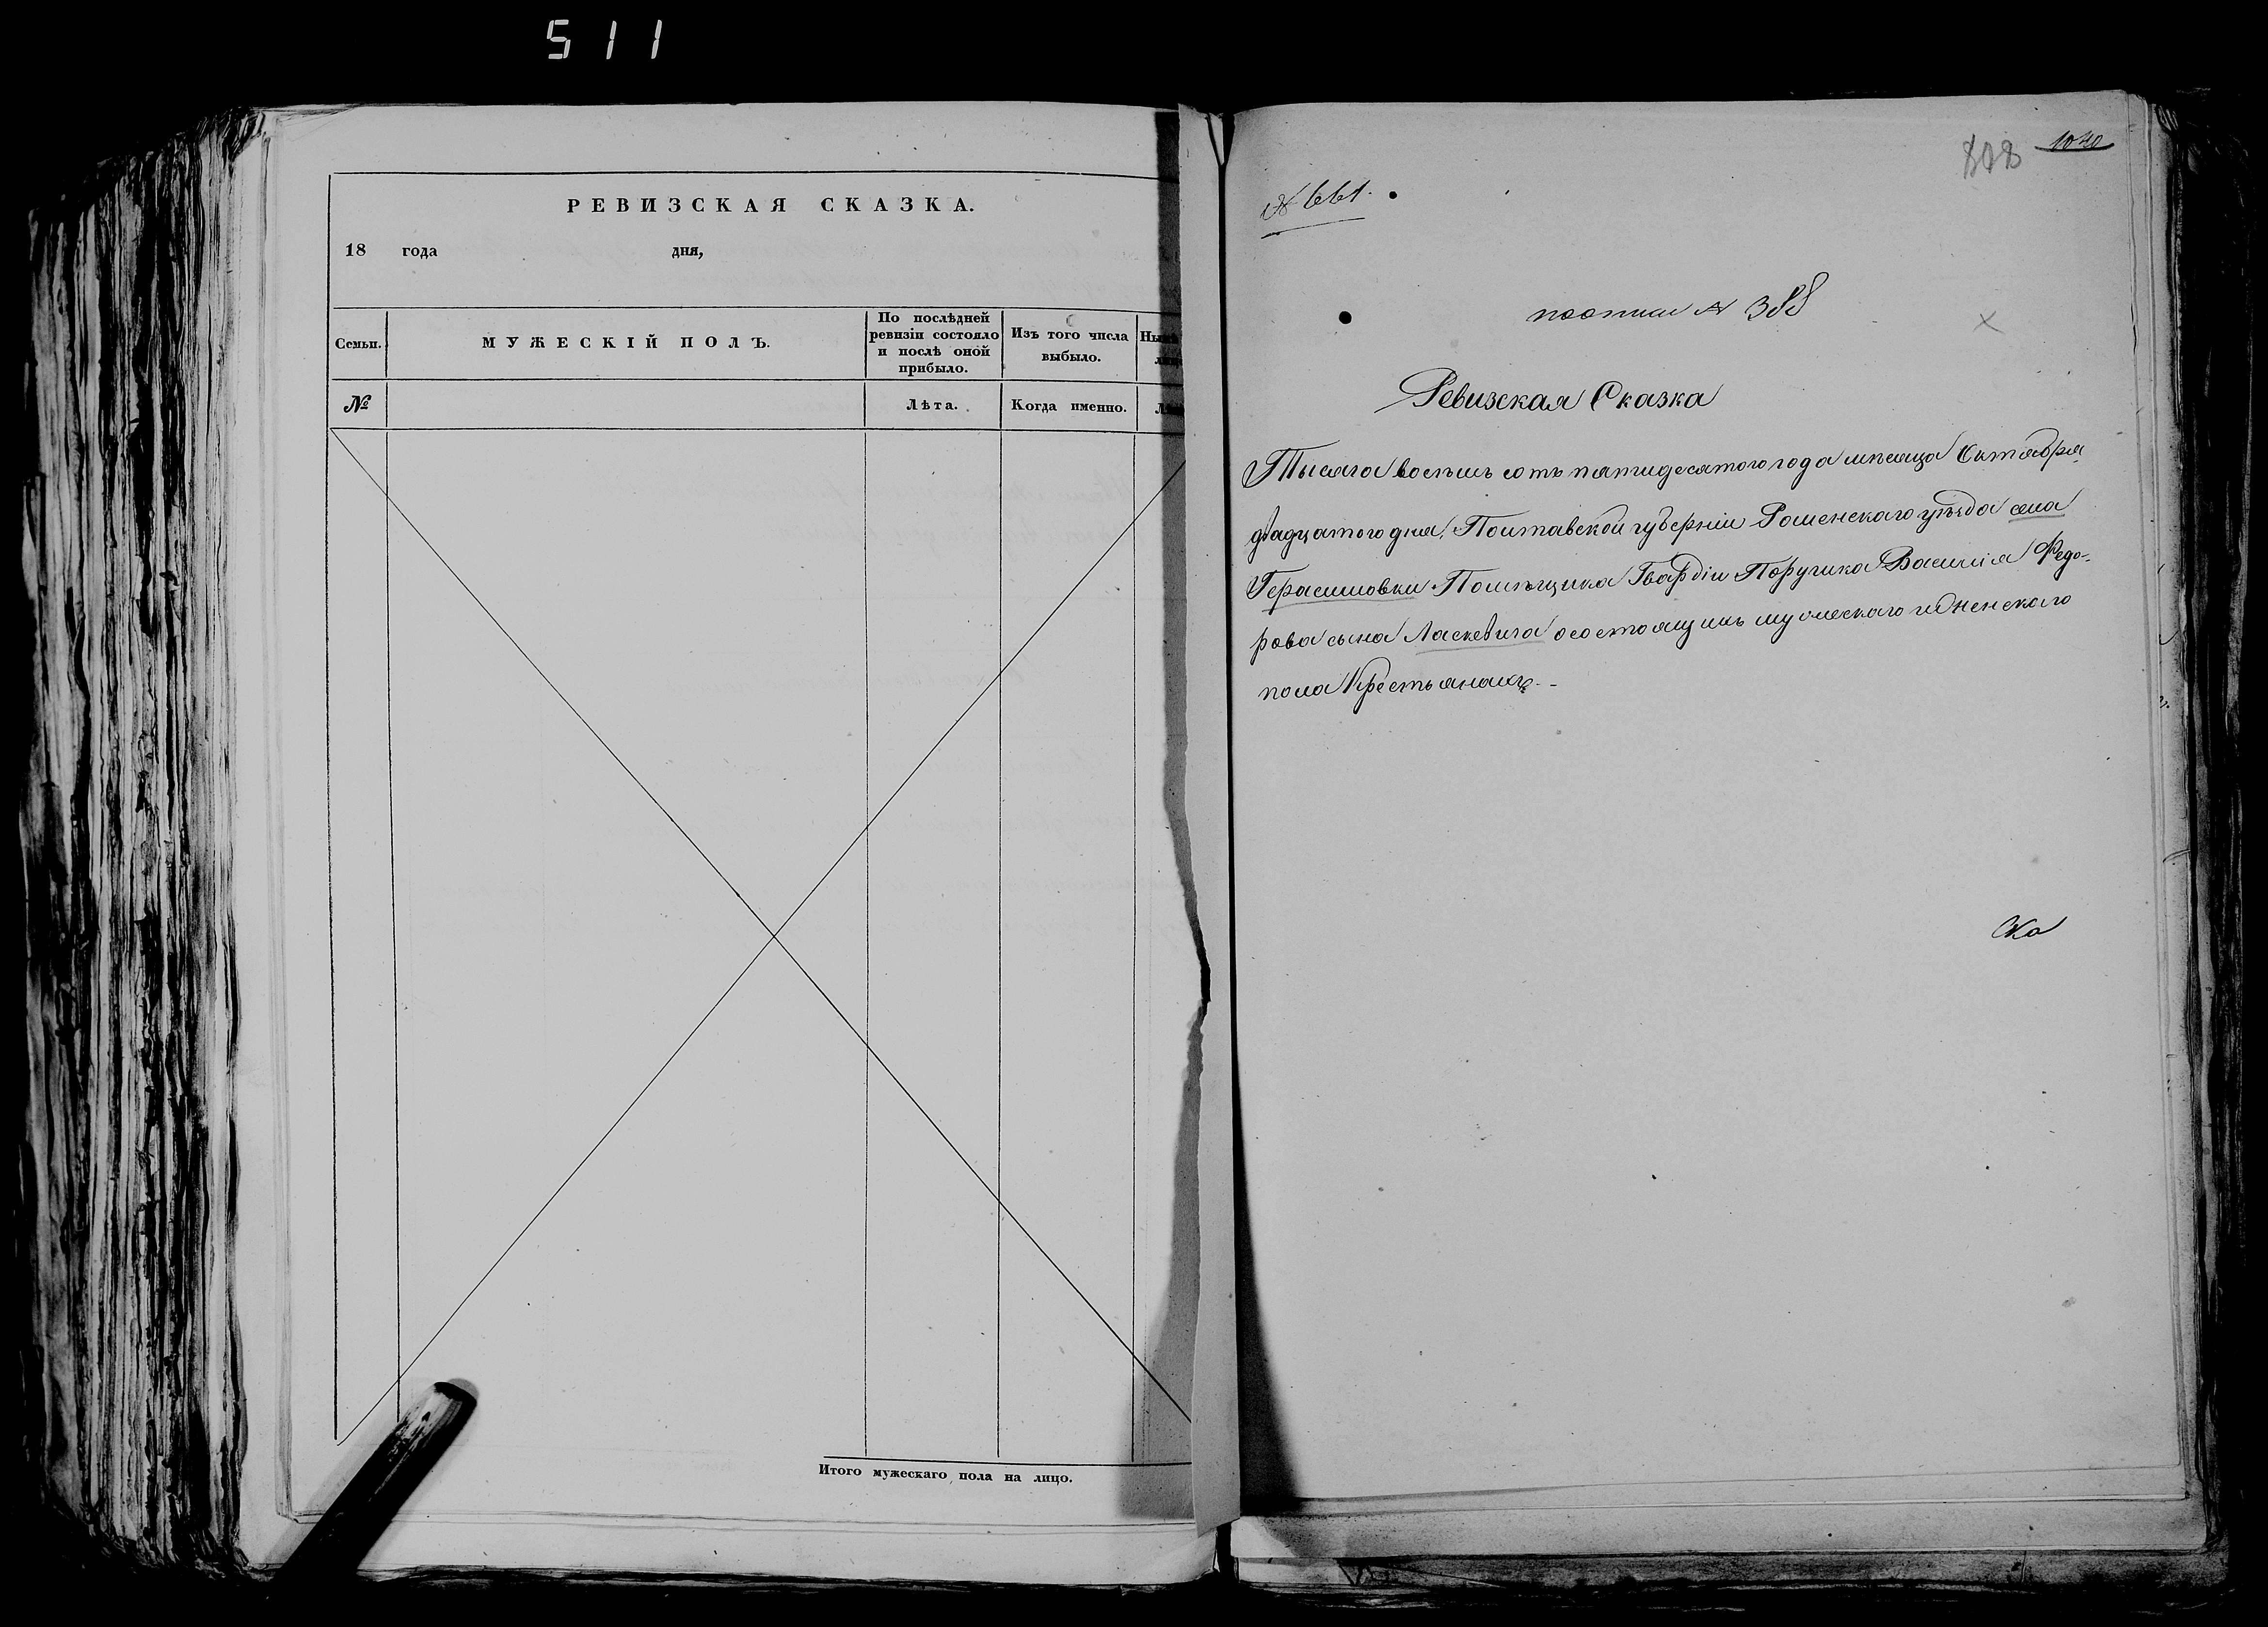 511
РЕВИЗСКАЯ СКАЗКА.
18 года дня,
Семьи.
МУЖЕСКІЙ ПОЛЪ.
По послѣдней
ревизіи состояло
и послѣ оной
прибыло.
Изъ того числа
выбыло.
№
Лѣта.
Когда именно.
Итого мужескаго пола на лицо.
808 1040
№ 661.
по описи № 388
Ревизская Сказка
Тысяча восемь сотъ пятидесятого года мѣсяца Октября
двадцатого дня, Полтавской губерніи Роменскаго уѣзда села
Герасимовки Помѣщика Гвардіи Поручика Василія Федо-
рова сына Ласкевича о состоящихъ мужескаго и женскаго
пола Крестьянахъ.
Ка